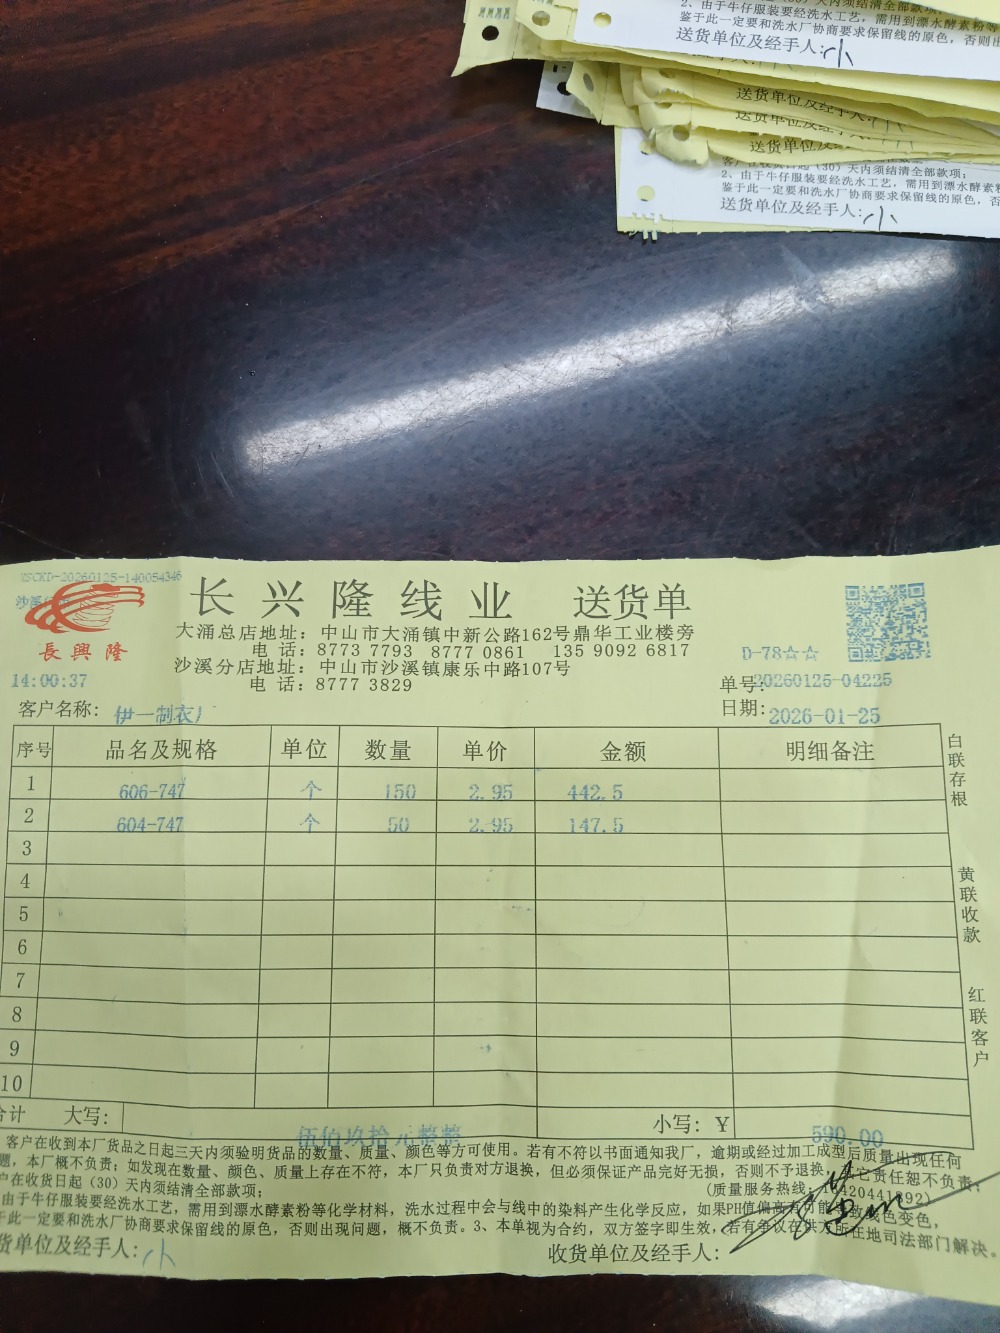 2、由于牛仔服装要经洗水工艺，需用到漂水酵素粉等
鉴于此一定要和洗水厂协商要求保留线的原色，否则出
送货单位及经手人:小
送货单位及经手人:
送货单位及经手人:
送货单位及经
客户在收货日起（30）天内须结清全部款项；
2、由于牛仔服装要经洗水工艺，需用到漂水酵素粉
鉴于此一定要和洗水厂协商要求保留线的原色，否
送货单位及经手人:小
XSCKD-20260125-140054346
沙溪
長興隆
长兴隆线业 送货单
大涌总店地址：中山市大涌镇中新公路162号鼎华工业楼旁
电 话：8773 7793 8777 0861 135 9092 6817
沙溪分店地址：中山市沙溪镇康乐中路107号
电 话：8777 3829
D-78☆☆
14:00:37
单号:20260125-04225
客户名称: 伊一制衣厂
日期: 2026-01-25
序号 品名及规格 单位 数量 单价 金额 明细备注
1 606-747 个 150 2.95 442.5
2 604-747 个 50 2.95 147.5
3
4
5
6
7
8
9
10
合计 大写: 伍佰玖拾元整整 小写: ￥ 590.00
白联存根
黄联收款
红联客户
客户在收到本厂货品之日起三天内须验明货品的数量、质量、颜色等方可使用。若有不符以书面通知我厂，逾期或经过加工成型后质量出现任何
题，本厂概不负责；如发现在数量、颜色、质量上存在不符，本厂只负责对方退换，但必须保证产品完好无损，否则不予退换，其它责任恕不负责；
户在收货日起（30）天内须结清全部款项；
(质量服务热线:
由于牛仔服装要经洗水工艺，需用到漂水酵素粉等化学材料，洗水过程中会与线中的染料产生化学反应，如果PH值偏高有可能导致线色变色，
于此一定要和洗水厂协商要求保留线的原色，否则出现问题，概不负责。3、本单视为合约，双方签字即生效，若有争议在供方所在地司法部门解决。
货单位及经手人:小
收货单位及经手人: